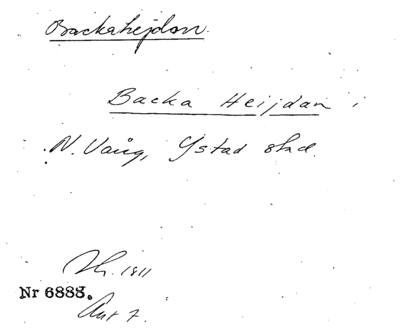 Backahejdan.
Backa Heijdan i
N. Vång, Ystad stad.
1811
Nr 6888.
Akt 7.